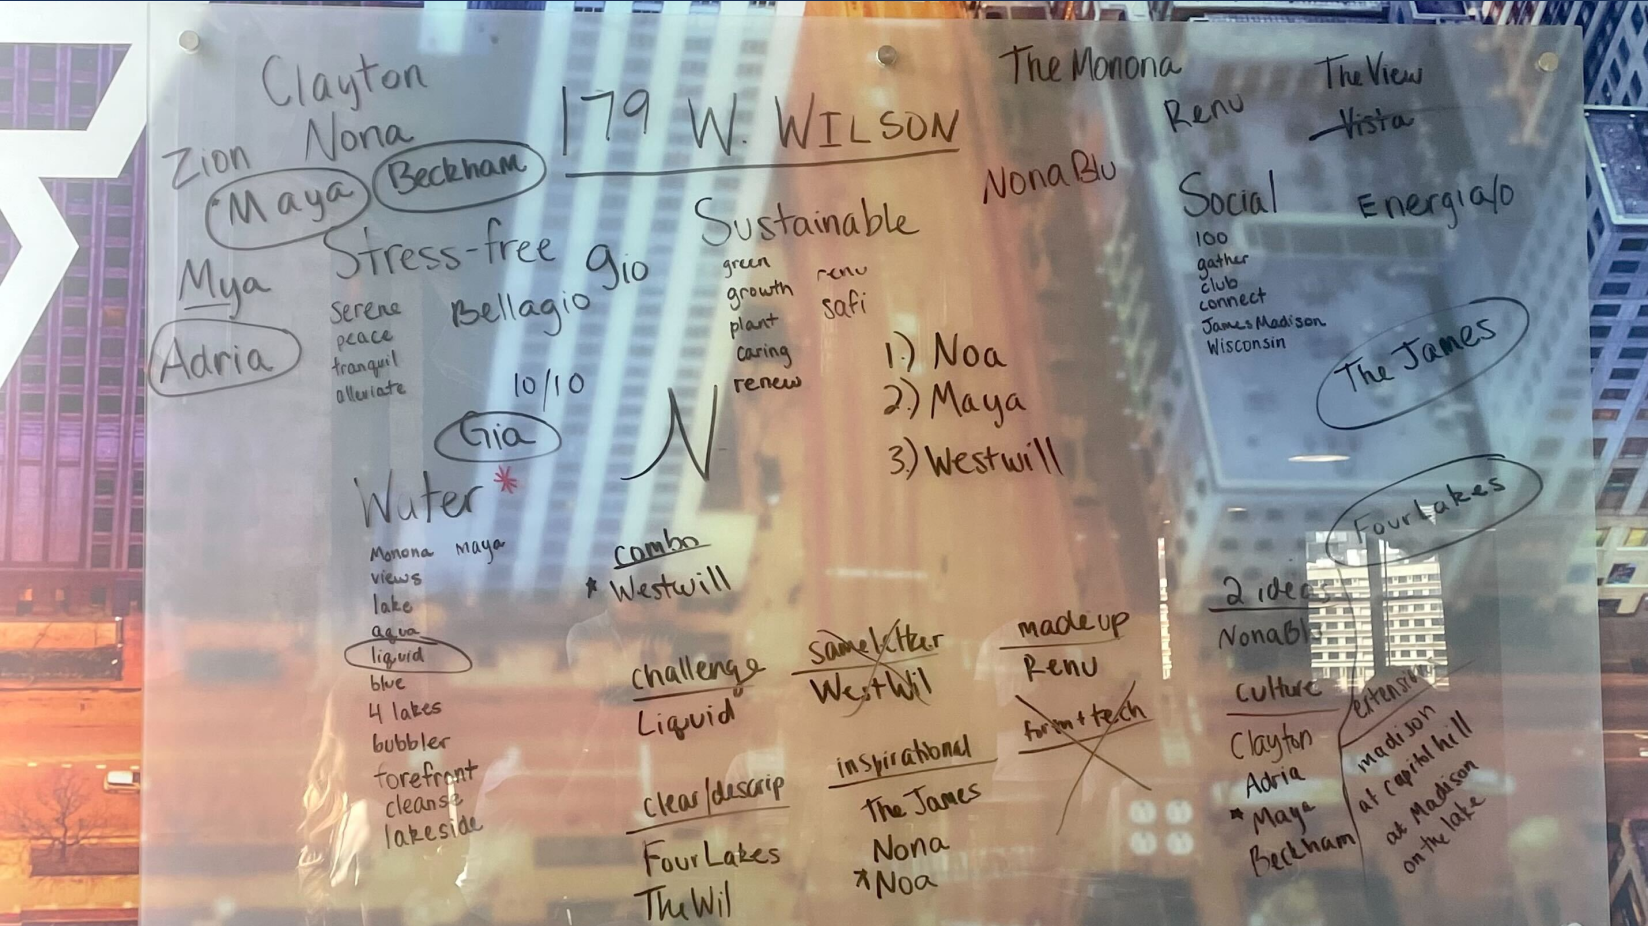 Clayton
Nona
Zion
Maya
Beckham
Mya
Adria
179 W. WILSON
The Monona
Renu
The View
Vista
NonaBlu
Stress-free
serene
peace
tranquil
alleviate
gio
Bellagio
10/10
Gia
Sustainable
green
growth
plant
caring
renew
renu
safi
Social
100
gather
club
connect
James Madison
Wisconsin
Energia/o
The James
Four Lakes
N
1.) Noa
2.) Maya
3.) Westwill
Water *
Monona maya
views
lake
aqua
liquid
blue
4 lakes
bubbler
forefront
cleanse
lakeside
combo
* Westwill
challenge
Liquid
same letter
WestWil
made up
Renu
form + tech
clear/descrip
Four Lakes
The Wil
inspirational
The James
Nona
* Noa
2 ideas
NonaBlu
culture
Clayton
Adria
* Maya
Beckham
extensions
madison
at capitol hill
at Madison
on the lake